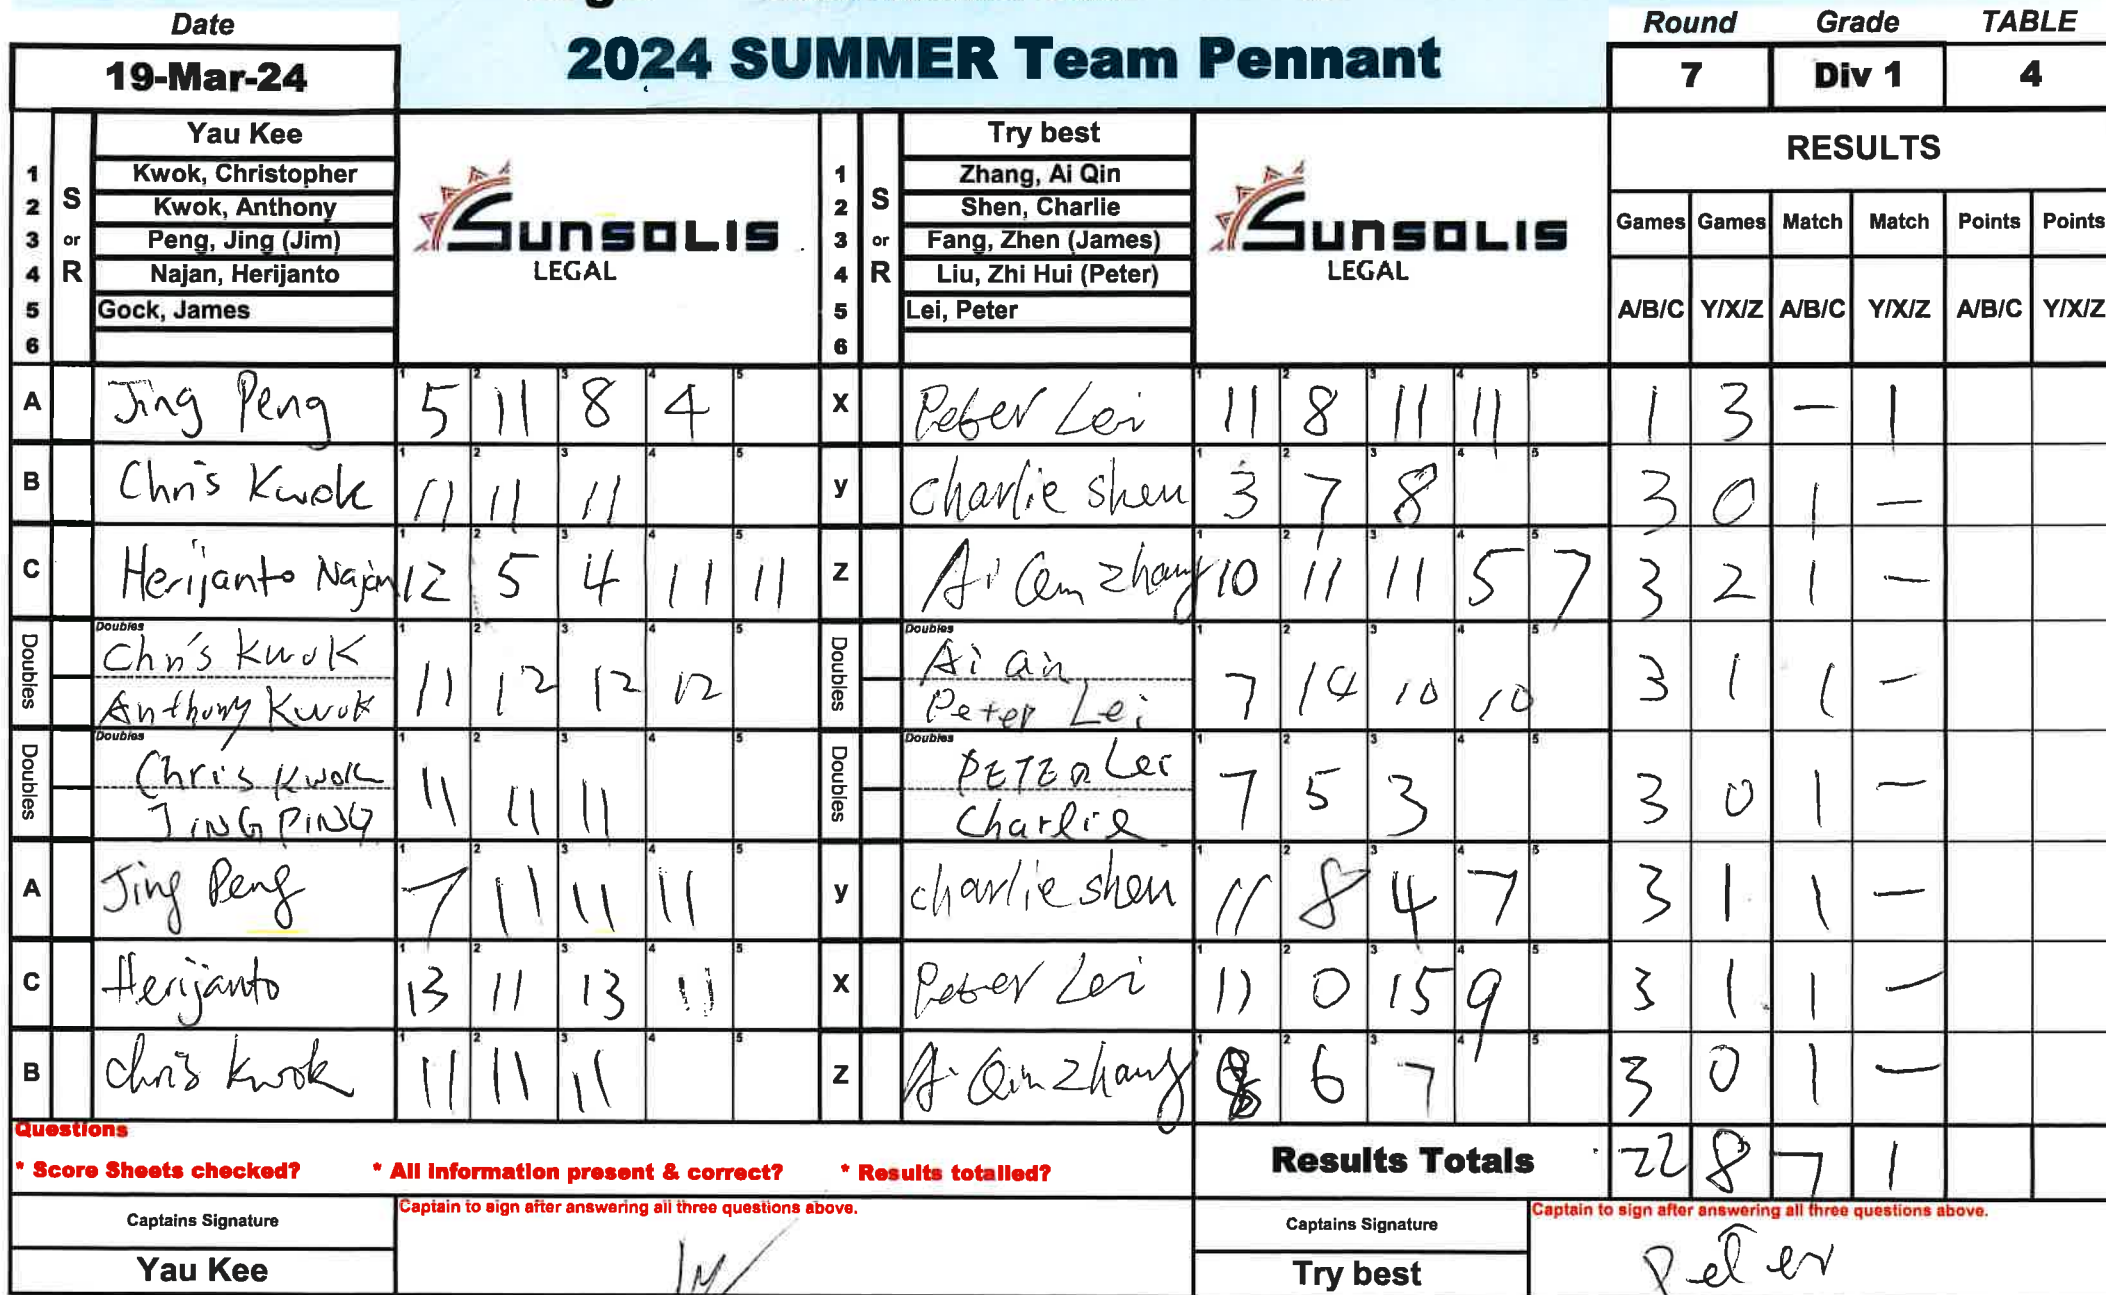 Date
2024 SUMMER Team Pennant
Round Grade TABLE
19-Mar-24
7 Div 1 4
Yau Kee
Try best
RESULTS
S or R
1 Kwok, Christopher
2 Kwok, Anthony
3 Peng, Jing (Jim)
4 Najan, Herijanto
5 Gock, James
6
SUNSOLIS
LEGAL
S or R
1 Zhang, Ai Qin
2 Shen, Charlie
3 Fang, Zhen (James)
4 Liu, Zhi Hui (Peter)
5 Lei, Peter
6
SUNSOLIS
LEGAL
Games Games Match Match Points Points
A/B/C Y/X/Z A/B/C Y/X/Z A/B/C Y/X/Z
A Jing Peng 5 11 8 4 X Peter Lei 11 8 11 11 1 3 - 1
B Chris Kwok 11 11 11 y Charlie Shen 3 7 8 3 0 1 -
C Herijanto Najan 12 5 4 11 11 Z Ai Qin Zhang 10 11 11 5 7 3 2 1 -
Doubles Chris Kwok
Anthony Kwok 11 12 12 12 Doubles Ai Qin
Peter Lei 7 14 10 10 3 1 1 -
Doubles Chris Kwok
JING PING 11 11 11 Doubles PETER Lei
Charlie 7 5 3 3 0 1 -
A Jing Peng 7 11 11 11 y charlie shen 11 8 4 7 3 1 1 -
C Herijanto 13 11 13 11 X Peter Lei 11 0 15 9 3 1 1 -
B chris kwok 11 11 11 Z Ai Qin Zhang 8 6 7 3 0 1 -
Questions
* Score Sheets checked? * All information present & correct? * Results totalled?
Results Totals 22 8 7 1
Captains Signature
Captain to sign after answering all three questions above.
Captains Signature
Captain to sign after answering all three questions above.
Yau Kee
Try best
Peter